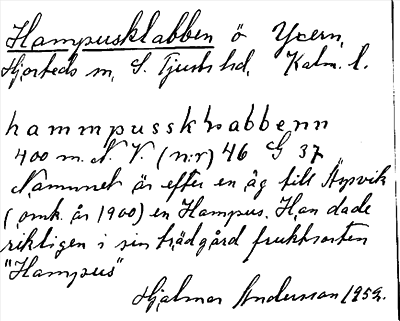 Hampusklabben ö Yxern,
Hjorteds sn, S. Tjusts hd, Kalm. l.
hammpussklrabbenn
400 m. N. V. (n:r) 46 G 37
Namnet är efter en äg till Äspvik
(omk. år 1900) en Hampus. Han dade
riktigen i sin trädgård fruktsorten
"Hampus"
Hjalmar Andersson 1959.